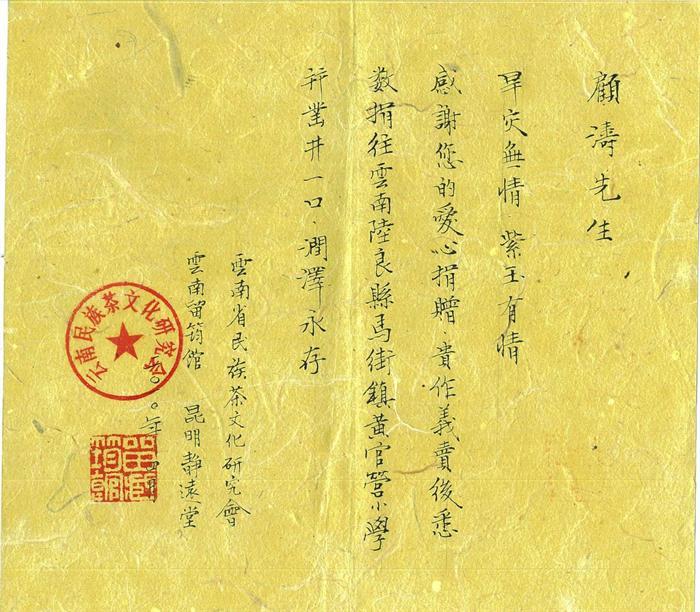 顧濤先生
旱灾無情·紫玉有情
感謝您的愛心捐贈·貴作義賣後悉
数捐往雲南陸良縣馬街鎮黃官營小學
并凿井一口·潤澤永存
雲南省民族茶文化研究會
雲南留筠馆 昆明静遠堂
云南民族茶文化研究会